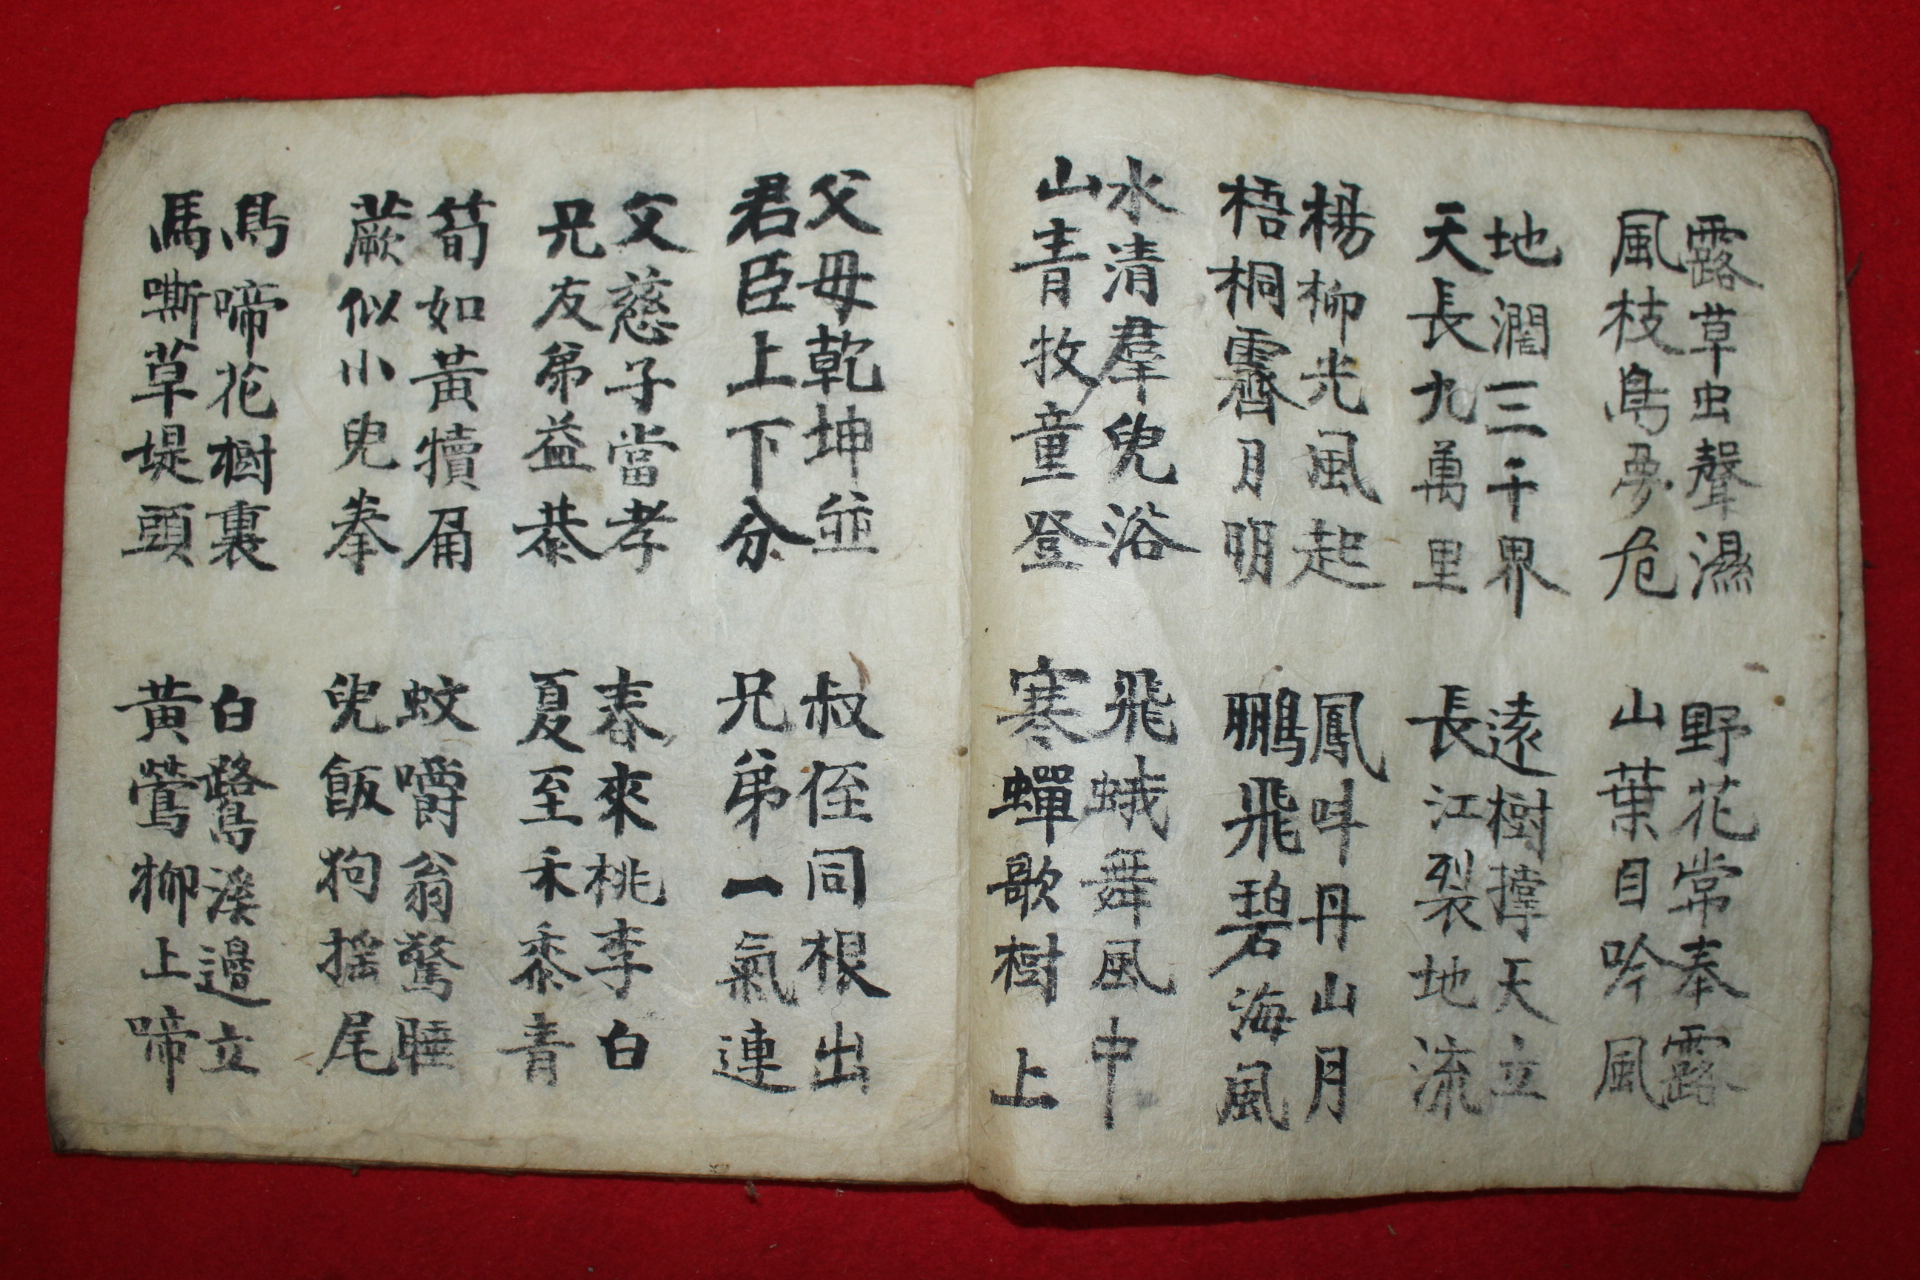 露草虫聲濕
風枝鳥夢危
野花常奉露
山葉自吟風
地濶三千界
天長九萬里
遠樹撑天立
長江裂地流
楊柳光風起
梧桐霽月明
鳳叫丹山月
鵬飛碧海風
水清羣兒浴
山青牧童登
飛蛾舞風中
寒蟬歌樹上
父母乾坤並
君臣上下分
叔侄同根出
兄弟一氣連
父慈子當孝
兄友弟益恭
春來桃李白
夏至禾黍青
筍如黃犢角
蕨似小兒拳
蚊嚼翁驚睡
兒飯狗搖尾
鳥啼花樹裏
馬嘶草堤頭
白鷺溪邊立
黃鶯柳上啼